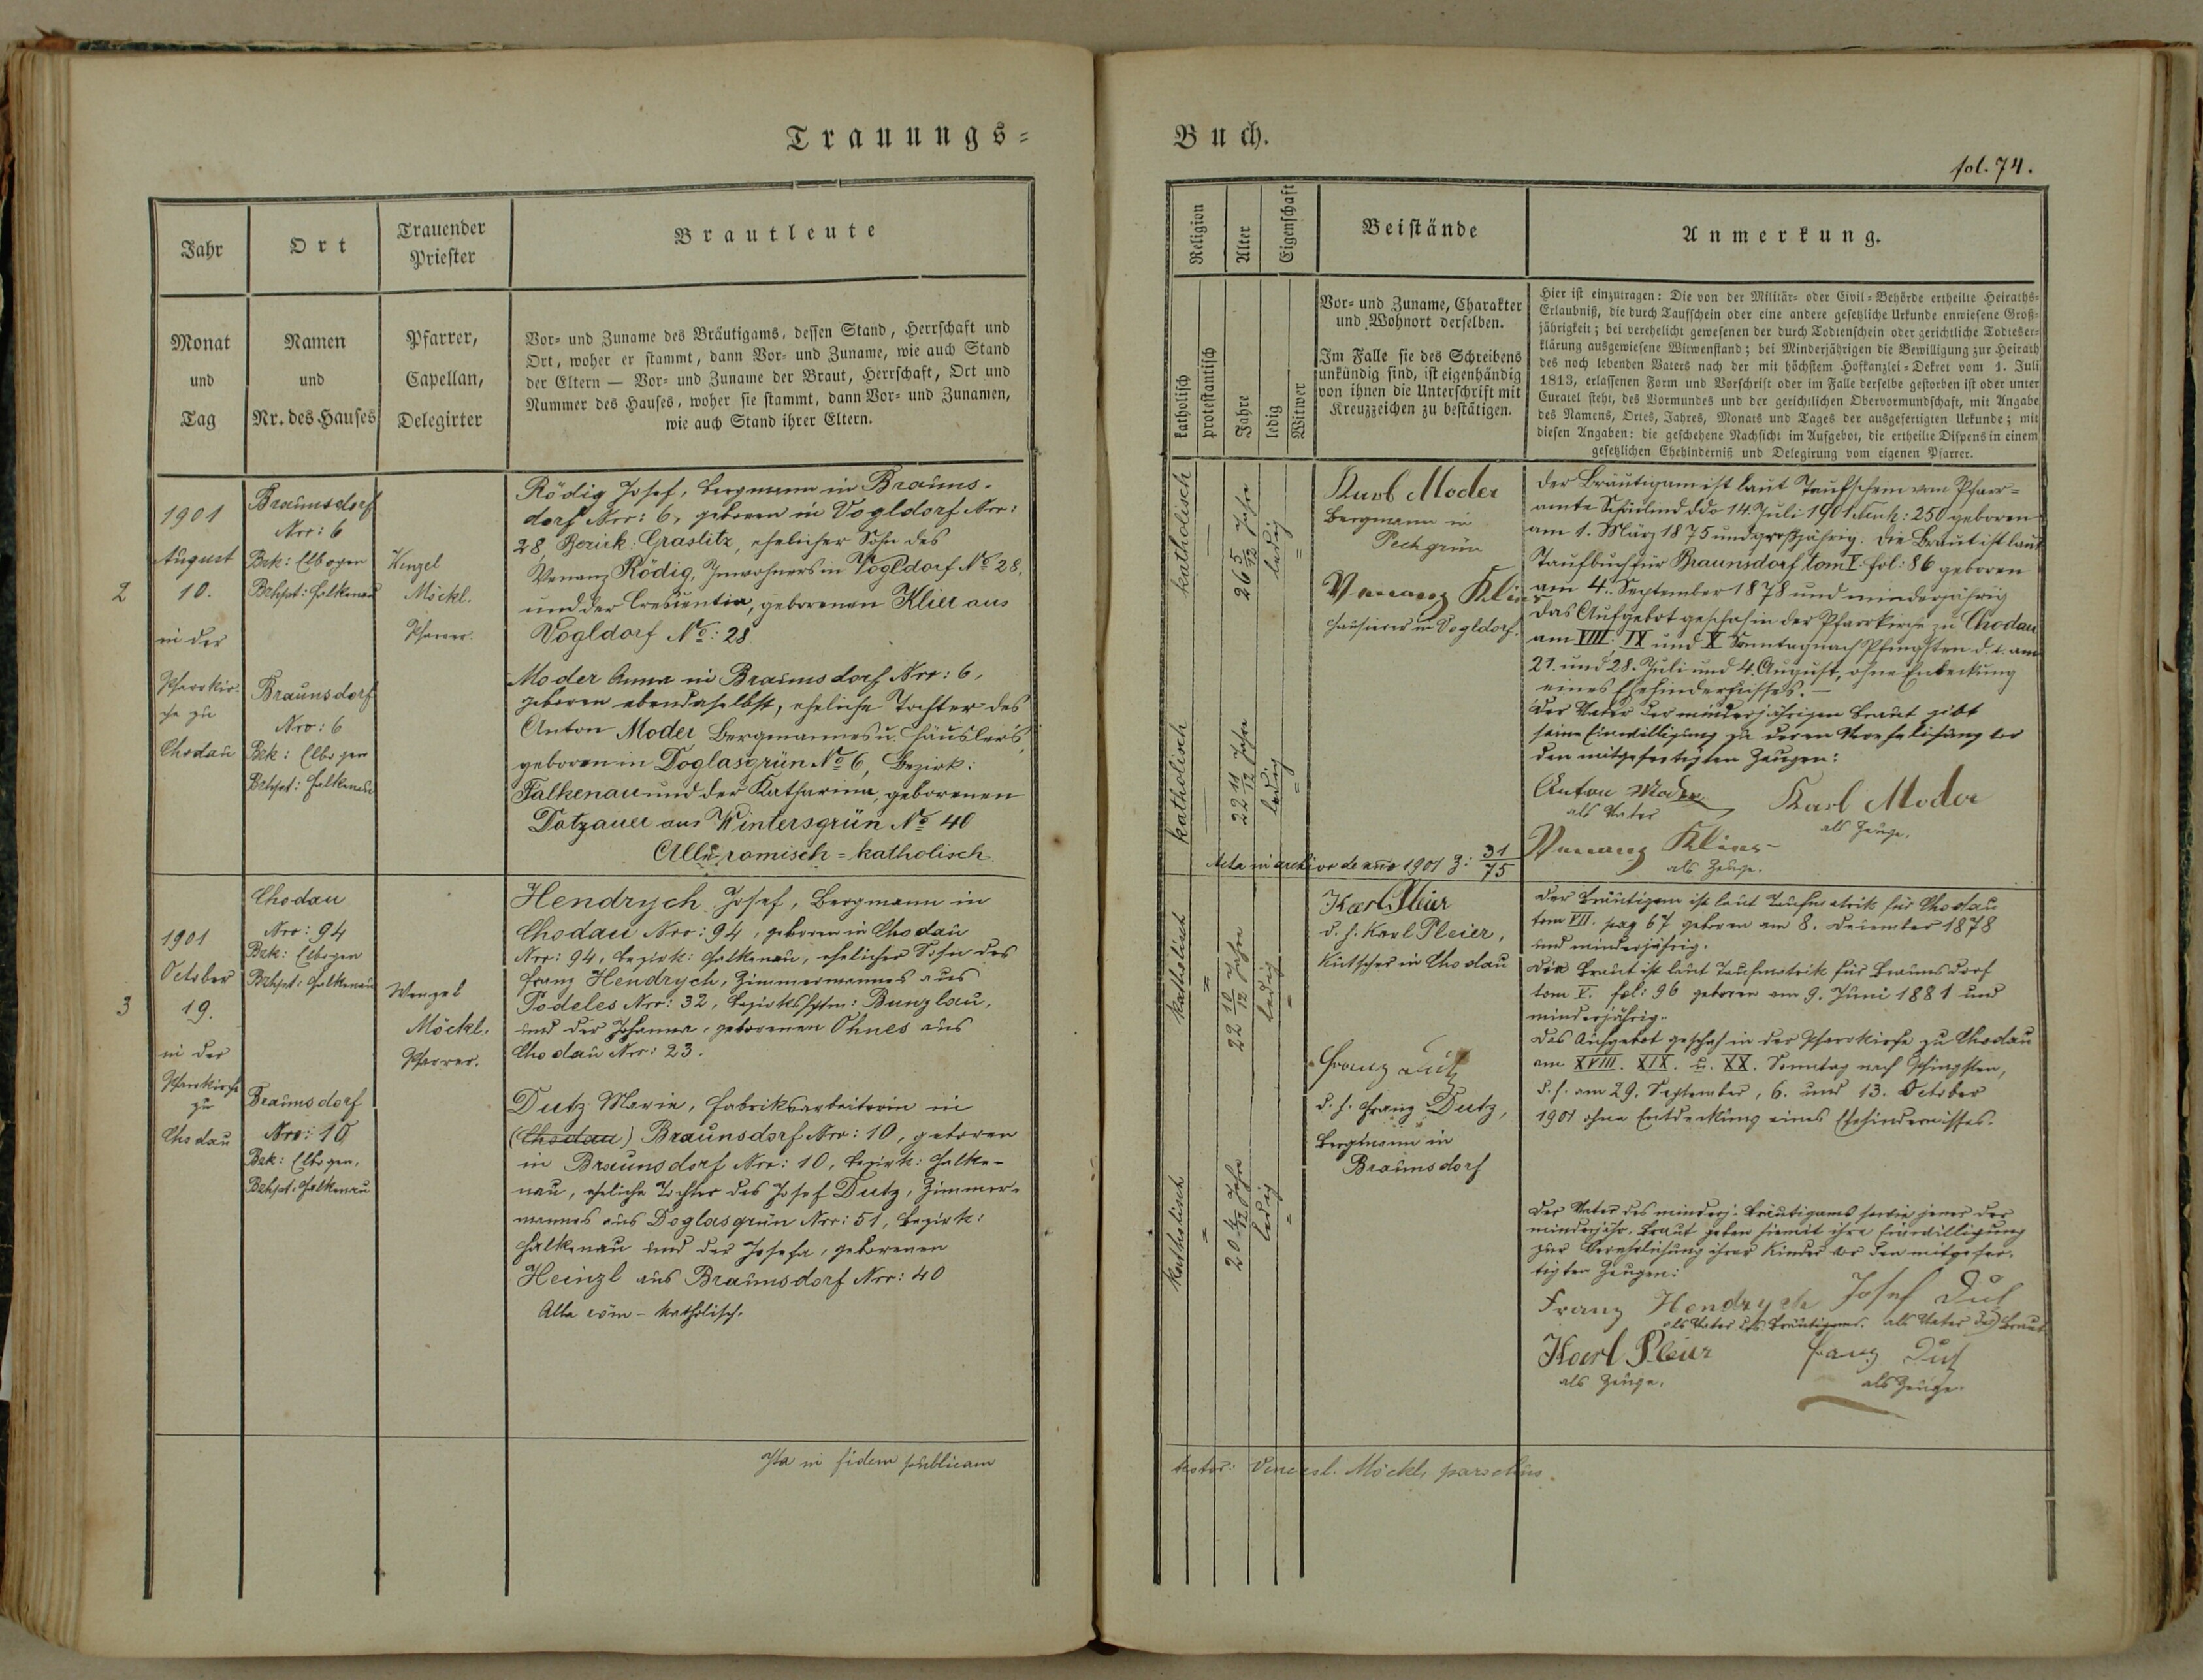 Trauungs=
Jahr
Ort
Trauender
Priester
Brautleute
Monat
und
Tag
Namen
und
Nr. des Hauses
Pfarrer,
Capellan,
Delegirter
Vor= und Zuname des Bräutigams, dessen Stand, Herrschaft und
Ort, woher er stammt, dann Vor= und Zuname, wie auch Stand
der Eltern — Vor= und Zuname der Braut, Herrschaft, Ort und
Nummer des Hauses, woher sie stammt, dann Vor= und Zunamen,
wie auch Stand ihrer Eltern.
2
1901
August
10.
in der
Pfarrkir-
che zu
Chodau
Braunsdorf
Nro: 6
Bzk: Elbogen
Bzhpt: Falkenau
Braunsdorf
Nro: 6
Bzk: Elbogen
Bzhpt: Falkenau
Wenzel
Möckl.
Pfarrer.
Rödig Josef, Bergmann in Brauns-
dorf Nro: 6, geboren in Vogldorf Nro:
28, Bezirk: Graslitz, ehelicher Sohn des
Venanz Rödig, Inwohners in Vogldorf No 28.
und der Creszentia, geborenen Klier aus
Vogldorf No: 28
Moder Anna in Braunsdorf Nro: 6,
geboren ebendaselbst, eheliche Tochter des
Anton Moder Bergmannes u. Häuslers,
geboren in Doglasgrün No 6, Bezirk:
Falkenau und der Katharina, geborenen
Dotzauer aus Wintersgrün No 40
Alle römisch=katholisch.
3
1901
October
19.
in der
Pfarrkirche
zu
Chodau
Chodau
Nro: 94
Bzk: Elbogen
Bzhpt: Falkenau
Braunsdorf
Nro: 10
Bzk: Elbogen,
Bzhpt: Falkenau
Wenzel
Möckl.
Pfarrer.
Hendrych Josef, Bergmann in
Chodau Nro: 94, geboren in Chodau
Nro: 94, Bezirk: Falkenau, ehelicher Sohn des
Franz Hendrych, Zimmermannes aus
Podeles Nro: 32, Bezirkshptm: Bunzlau,
und der Johanna, geborenen Ohnes aus
Chodau Nro: 23.
Dutz Marie, Fabriksarbeiterin in
(Chodau) Braunsdorf Nro: 10, geboren
in Braunsdorf Nro: 10, Bezirk: Falke-
nau, eheliche Tochter des Josef Dutz, Zimmer-
mannes aus Doglasgrün Nro: 51, Bezirk:
Falkenau und der Josefa, geborenen
Heinzl aus Braunsdorf Nro: 40
Alle röm-katholisch.
Ita in fidem publicam
Buch.
fol. 74.
Religion
Alter
Eigenschaft
Beistände
Anmerkung.
katholisch
protestantisch
Jahre
ledig
Witwer
Vor= und Zuname, Charakter
und Wohnort derselben.
Im Falle sie des Schreibens
unkündig sind, ist eigenhändig
von ihnen die Unterschrift mit
Kreuzzeichen zu bestätigen.
Hier ist einzutragen: Die von der Militär= oder Civil=Behörde ertheilte Heiraths=
Erlaubniß, die durch Taufschein oder eine andere gesetzliche Urkunde erwiesene Groß=
jährigkeit; bei verehelicht gewesenen der durch Todtenschein oder gerichtliche Todteser=
klärung ausgewiesene Witwenstand; bei Minderjährigen die Bewilligung zur Heirath
des noch lebenden Vaters nach der mit höchstem Hofkanzlei=Dekret vom 1. Juli
1813, erlassenen Form und Vorschrift oder im Falle derselbe gestorben ist oder unter
Curatel steht, des Vormundes und der gerichtlichen Obervormundschaft, mit Angabe
des Namens, Ortes, Jahres, Monats und Tages der ausgefertigten Urkunde; mit
diesen Angaben: die geschehene Nachsicht im Aufgebot, die ertheilte Dispens in einem
gesetzlichen Ehehinderniß und Delegirung vom eigenen Pfarrer.
katholisch
26 5/12 Jahre
ledig
katholisch
22 11/12 Jahre
ledig
Karl Moder
Bergmann in
Pechgrün
Venanz Klier
Hausierer in Vogldorf.
Der Bräutigam ist laut Taufschein vom Pfarr=
amte Schönlind ddo 14. Juli 1901 : 250 geboren
am 1. März 1875 und großjährig. Die Braut ist laut
Taufbuch für Braunsdorf tom V. fol: 86 geboren
am 4. September 1878 und minderjährig
Das Aufgebot geschah in der Pfarrkirche zu Chodau
am VIII, IX und X Sonntag nach Pfingsten d. i. am
21. und 28. Juli und 4. August, ohne Entdeckung
eines Ehehindernisses.—
Der Vater der minderjährigen Braut gibt
seine Einwilligung zu deren Verehelichung vor
den mitgefertigten Zeugen:
Anton Moder
als Vater
Karl Moder
als Zeuge.
Venanz Klier
als Zeuge.
Acta in archivo de anno 1901 Z: 31/75
katholisch
22 10/12 Jahre
ledig
katholisch
20 4/12 Jahre
ledig
Karl Pleier
d. h. Karl Pleier,
Kutscher in Chodau
Franz Dutz
d. h. Franz Dutz,
Bergmann in
Braunsdorf
Der Bräutigam ist laut Taufmatrik für Chodau
tom VII. pag 67 geboren am 8. December 1878
und minderjährig.
Die Braut ist laut Taufmatrik für Braunsdorf
tom V. fol: 96 geboren am 9. Juni 1881 und
minderjährig.
Das Aufgebot geschah in der Pfarrkirche zu Chodau
am XVIII. XIX. u. XX. Sonntag nach Pfingsten,
d. h. am 29. September, 6. und 13. October
1901 ohne Entdeckung eines Ehehindernisses.
Der Vater des minderj. Bräutigams sowie jener der
minderjähr. Braut geben hiemit ihre Einwilligung
zur Verehelichung ihrer Kinder vor den mitgefer-
tigten Zeugen:
Franz Hendrych
als Vater des Bräutigams.
Josef Dutz
als Vater der Braut
Karl Pleier
als Zeuge.
Franz Dutz
als Zeuge.
testor: Vencesl. Möckl, parochus.